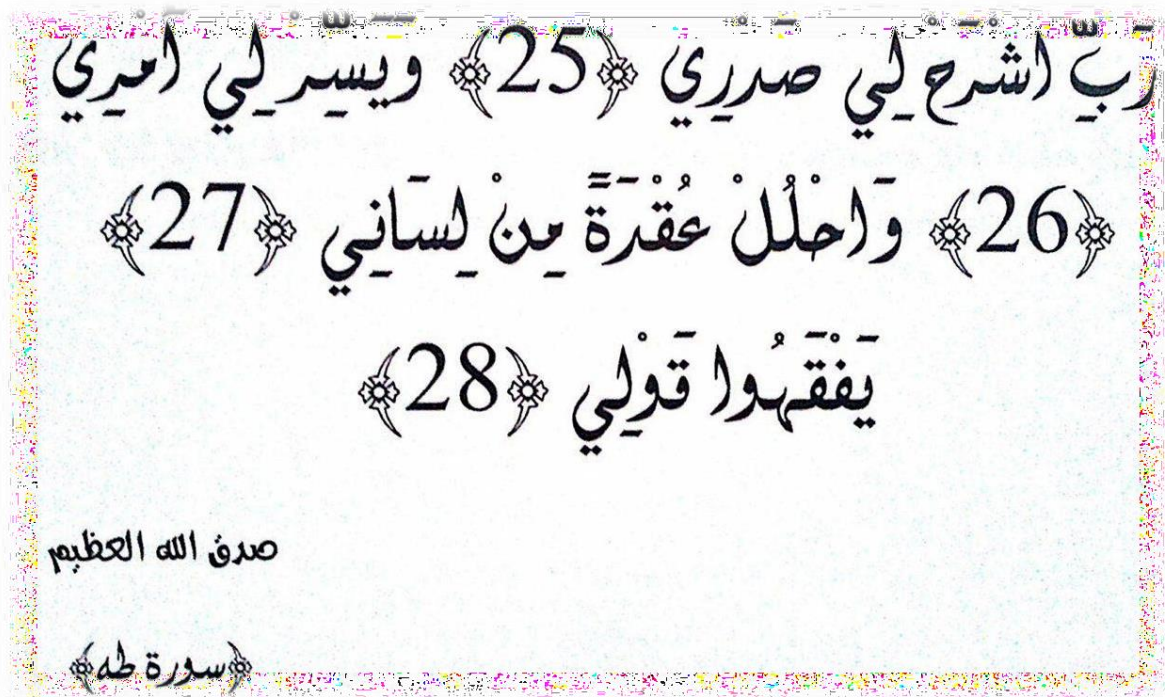 رَبِّ اشْرَحْ لِي صَدْرِي ﴿25﴾ وَيَسِّرْ لِي أَمْرِي
﴿26﴾ وَاحْلُلْ عُقْدَةً مِنْ لِسَانِي ﴿27﴾
يَفْقَهُوا قَوْلِي ﴿28﴾
صدق الله العظيم
﴿سورة طه﴾